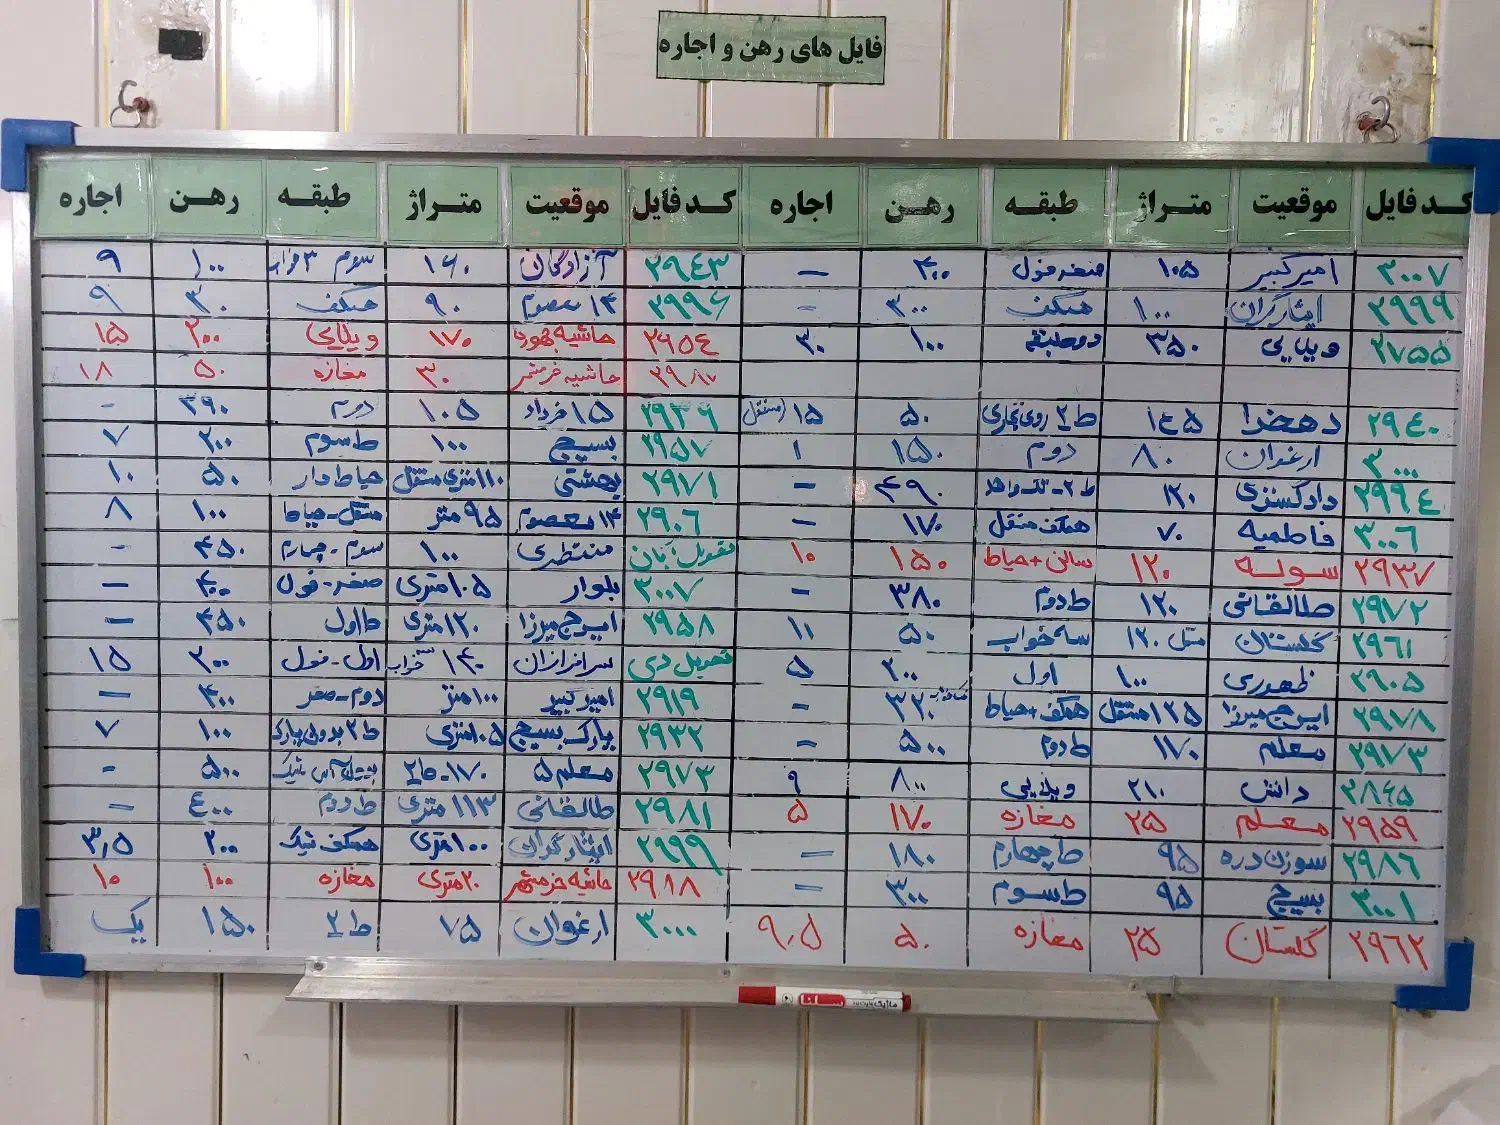 فایل های رهن و اجاره
کد فایل موقعیت متراژ طبقه رهن اجاره کد فایل موقعیت متراژ طبقه رهن اجاره
۳۰۰۷ امیرکبیر ۱۰۵ صفر فول ۴۰۰ — ۲۹۴۳ آزادگان ۱۶۰ سوم ۳ خواب ۱۰۰ ۹
۲۹۹۹ ایثارگران ۱۰۰ همکف ۳۰۰ - ۲۹۹۶ ۱۴ معصوم ۹۰ همکف ۳۰ ۹
۲۷۵۵ ویلایی ۳۵۰ دو طبقه ۱۰۰ ۳۰ ۲۶۵۴ حاشیه جمهوری ۱۷۰ ویلایی ۲۰۰ ۱۵
۲۹۸۷ حاشیه خرمشهر ۳۰ مغازه ۵۰ ۱۸
۲۹۴۰ دهخدا ۱۴۵ ط ۲ روی تجاری ۵۰ ۱۵ (مستقل) ۲۹۳۶ ۱۵ خرداد ۱۰۵ دوم ۳۹۰ -
۳۰۰۰ ارغوان ۸۰ دوم ۱۵۰ ۱ ۲۹۵۷ بسیج ۱۰۰ ط سوم ۲۰۰ ۷
۲۹۹۴ دادگستری ۱۲۰ ط ۲ - تک واحد ۴۹۰ — ۲۹۷۱ بهشتی ۱۱۰ متری مستقل حیاط دار ۵۰ ۱۰
۳۰۰۶ فاطمیه ۷۰ همکف مستقل ۱۷۰ — ۲۹۰۶ ۱۴ معصوم ۹۵ متر مستقل - حیاط ۱۰۰ ۸
۲۹۳۷ سوله ۱۲۰ سالن + حیاط ۱۵۰ ۱۰ تحویل آبان منتظری ۱۰۰ سوم - چهارم ۴۵۰ -
۲۹۷۲ طالقانی ۱۲۰ ط دوم ۳۸۰ - ۳۰۰۷ بلوار ۱۰۵ متری صفر - فول ۴۰۰ —
۲۹۶۱ گلستان ۱۲۰ سه خواب ۵۰ ۱۱ ۲۹۵۸ ایرج میرزا ۱۲۰ متری ط اول ۴۵۰ —
۲۹۰۵ ظهوری ۱۰۰ اول ۲۰۰ ۵ تحویل دی سرافرازان ۱۴۰ سه خواب اول - فول ۳۰۰ ۱۵
۲۹۷۸ ایرج میرزا ۱۲۵ مستقل همکف + حیاط ۳۲۰ - ۲۹۱۹ امیرکبیر ۱۰۰ متر دوم - صفر ۴۰۰ —
۲۹۷۳ معلم ۱۷۰ ط دوم ۵۰۰ - ۲۹۳۲ پارک بسیج ۱۰۵ متری ط ۲ بدون پارک ۱۰۰ ۷
۲۸۶۵ دانش ۲۱۰ ویلایی ۸۰۰ ۹ ۲۹۷۳ معلم ۵ ۱۷۰ - ط ۲ شیک ۵۰۰ -
۲۹۵۹ معلم ۲۵ مغازه ۱۷۰ ۵ ۲۹۸۱ طالقانی ۱۱۳ متری ط دوم ۴۰۰ —
۲۹۸۶ سوزن دره ۹۵ ط چهارم ۱۸۰ — ۲۹۹۹ ایثارگران ۱۰۰ متری همکف شیک ۲۰۰ ۳,۵
۳۰۰۱ بسیج ۹۵ ط سوم ۳۰۰ — ۲۹۸۸ حاشیه خرمشهر ۲۰ متری مغازه ۱۰۰ ۱۰
۲۹۶۲ گلستان ۲۵ مغازه ۵۰ ۹,۵ ۳۰۰۰ ارغوان ۷۵ ط ۲ ۱۵۰ یک